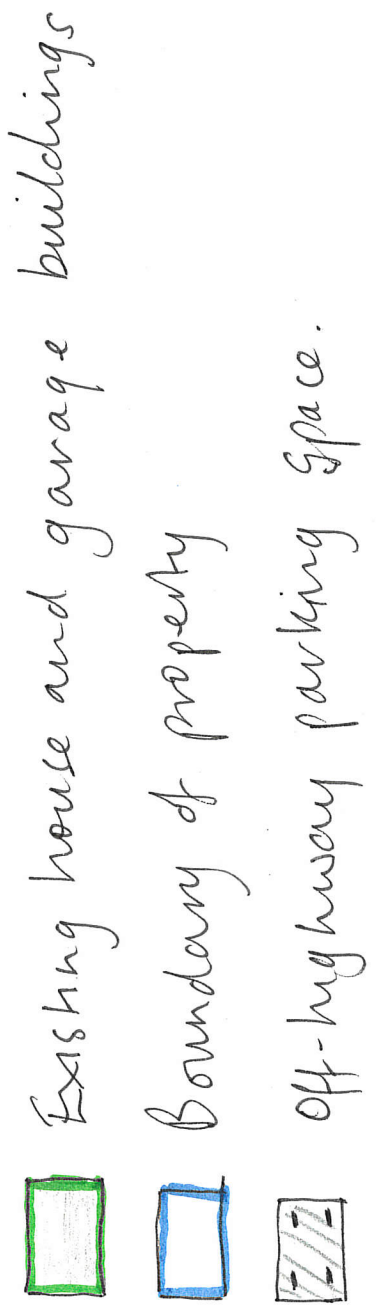 Existing house and garage buildings
Boundary of property
Off-highway parking space.